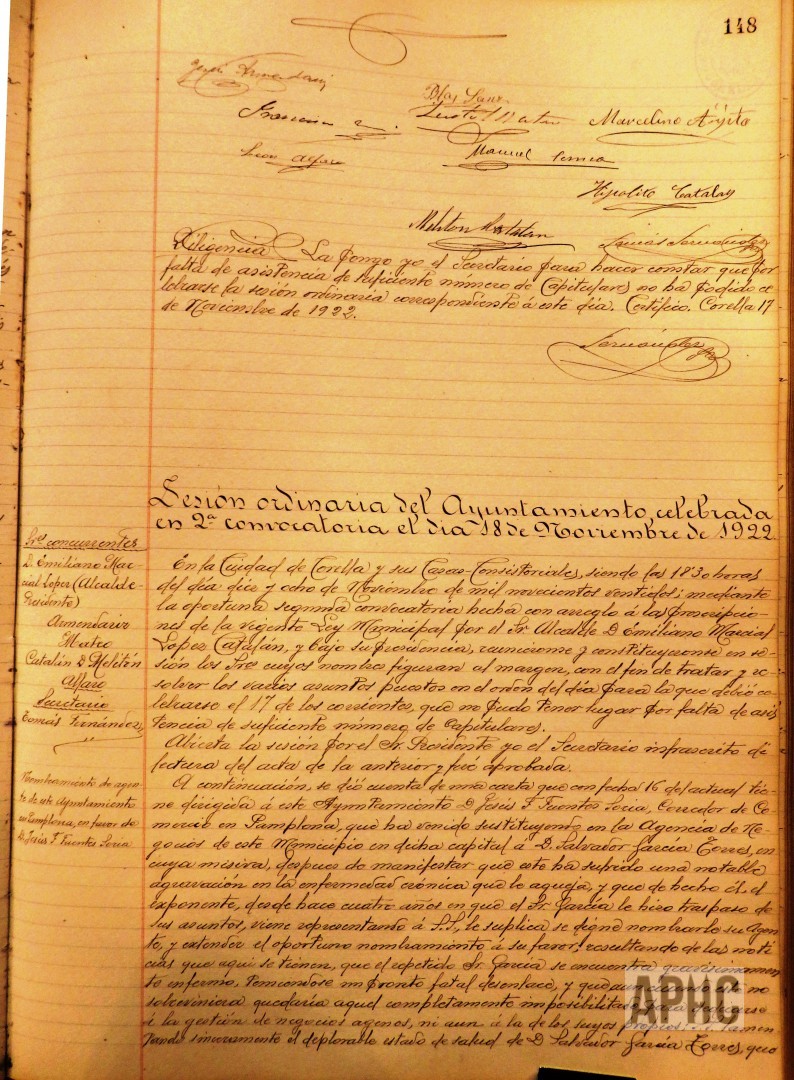 148
Blas Sanz
Marcelino Arjita
Manuel
Hipolito Catalan
Meliton Catalan
Diligencia La pongo yo el Secretario para hacer constar que por
falta de asistencia de suficiente número de Capitulares no ha podido ce
lebrarse la sesión ordinaria correspondiente á este dia. Certifico. Corella 17
de Noviembre de 1922.
Fernández
Sesión ordinaria del Ayuntamiento, celebrada
en 2ª convocatoria el dia 18 de Noviembre de 1922
Sres concurrentes
D. Emiliano Mar
cial Lopez (Alcalde-
Presidente)
Armendariz
Mateo
Catalán D. Melitón
Alfaro
Secretario
Tomás Fernández
Nombramiento de agen
te de este Ayuntamiento
en Pamplona, en favor de
D. Jesús F. Fuentes Soria
En la Ciudad de Corella y sus Casas-Consistoriales, siendo las 18'30 horas
del día diez y ocho de Noviembre de mil novecientos ventidos; mediante
la oportuna segunda convocatoria hecha con arreglo á las prescripcio-
nes de la vigente Ley Municipal por el Sr. Alcalde D. Emiliano Marcial
Lopez Catalán, y bajo su presidencia, reunieronse y constituyeronse en se-
sión los Sres cuyos nombres figuran al margen, con el fin de tratar y re
solver los varios asuntos puestos en el orden del día para la que debió ce
lebrarse el 17 de los corrientes, que no pudo tener lugar por falta de asis
tencia de suficiente número de Capitulares.
Abierta la sesión por el Sr. Presidente yo el Secretario infrascrito dí
lectura del acta de la anterior y fué aprobada.
A continuación, se dió cuenta de una carta que con fecha 16 del actual tie
ne dirigida á este Ayuntamiento D. Jesús F. Fuentes Soria, Corredor de Co
mercio en Pamplona, que ha venido sustituyendo en la Agencia de Ne
gocios de este Municipio en dicha capital á D. Salvador García Torres, en
cuya misiva, despues de manifestar que este ha sufrido una notable
agravación en la enfermedad crónica que le aqueja, y que de hecho él, el
exponente, desde hace cuatro años en que el Sr. García le hizo traspaso de
sus asuntos, viene representando á S.S., le suplica se digne nombrarle su Agen
te, y extender el oportuno nombramiento á su favor; resultando de las noti
cias que aqui se tienen, que el repetido Sr. García se encuentra gravisimamen
te enfermo, temiendose un pronto fatal desenlace, y que aun cuando este no
sobreviniera quedaría aquel completamente imposibilitado para dedicarse
á la gestión de negocios agenos, ni aun á la de los suyos propios: lamen
tando sinceramente el deplorable estado de salud de D. Salvador García Torres, que
APHC